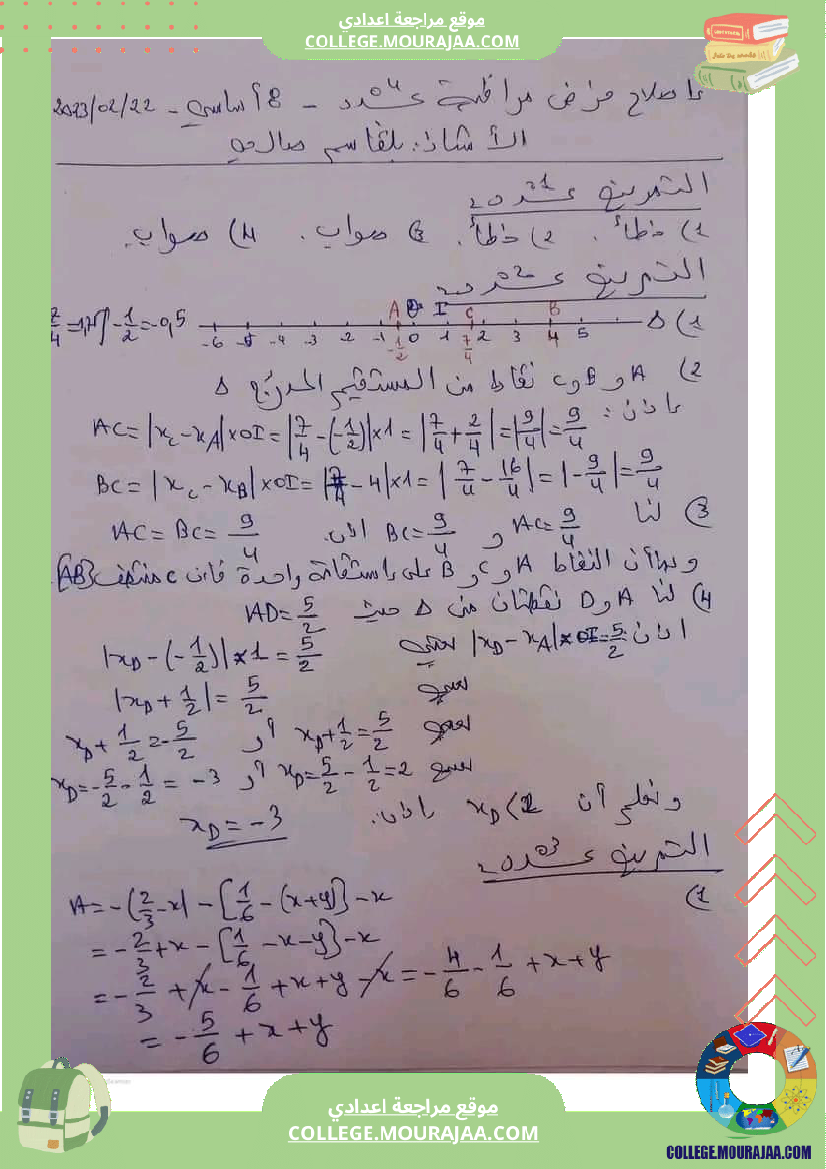 موقع مراجعة اعدادي
COLLEGE.MOURAJAA.COM
إصلاح فرض مراقبة عـ04ـدد - 8 أساسي - 2023/02/22
الأستاذ: بلقاسم صالحي
التمرين عـ01ـدد
1) خطأ. 2) خطأ. 3) صواب. 4) صواب.
التمرين عـ02ـدد
1) Δ
7/4 = 1,75 -1/2 = -0,5
A O I C B
-6 -5 -4 -3 -2 -1 -1/2 0 1 7/4 2 3 4 5
2) A و B و C نقاط من المستقيم المدرّج Δ
إذن: AC = |x_C - x_A| × OI = |7/4 - (-1/2)| × 1 = |7/4 + 2/4| = |9/4| = 9/4
BC = |x_C - x_B| × OI = |7/4 - 4| × 1 = |7/4 - 16/4| = |-9/4| = 9/4
3) لنا AC = 9/4 و BC = 9/4 إذن AC = BC = 9/4
وبما أن النقاط A و C و B على إستقامة واحدة فإن C منتصف [AB].
4) لنا A و D نقطتان من Δ حيث AD = 5/2
إذن |x_D - x_A| × OI = 5/2 يعني |x_D - (-1/2)| × 1 = 5/2
يعني |x_D + 1/2| = 5/2
يعني x_D + 1/2 = 5/2 أو x_D + 1/2 = -5/2
يعني x_D = 5/2 - 1/2 = 2 أو x_D = -5/2 - 1/2 = -3
ونعلم أن x_D < 2 إذن x_D = -3
التمرين عـ03ـدد
1)
A = -(2/3 - x) - [1/6 - (x+y)] - x
= -2/3 + x - [1/6 - x - y] - x
= -2/3 + x - 1/6 + x + y - x = -4/6 - 1/6 + x + y
= -5/6 + x + y
موقع مراجعة اعدادي
COLLEGE.MOURAJAA.COM
COLLEGE.MOURAJAA.COM